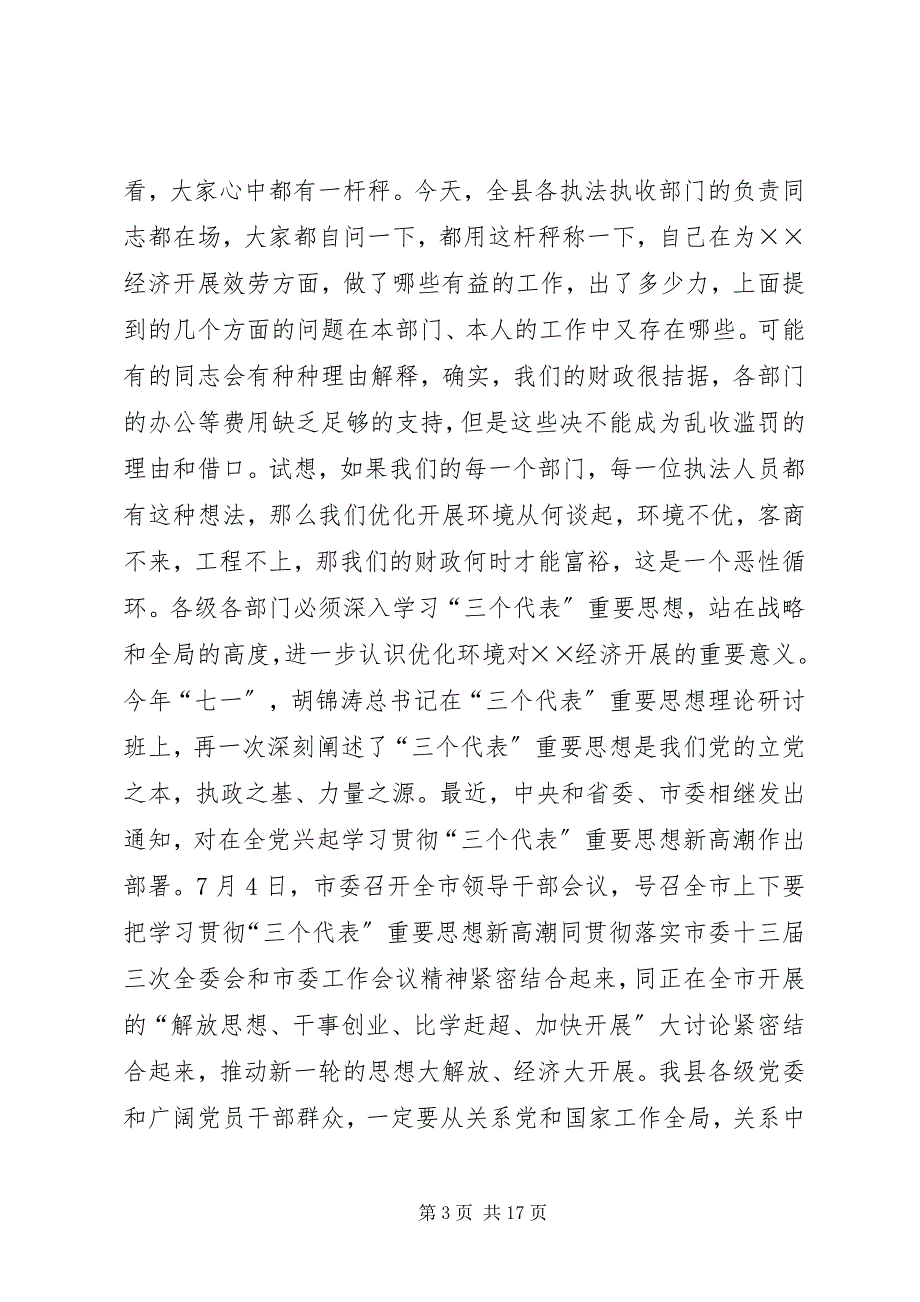 看，大家心中都有一杆秤。今天，全县各执法执收部门的负责同
志都在场，大家都自问一下，都用这杆秤称一下，自己在为××
经济开展效劳方面，做了哪些有益的工作，出了多少力，上面提
到的几个方面的问题在本部门、本人的工作中又存在哪些。可能
有的同志会有种种理由解释，确实，我们的财政很拮据，各部门
的办公等费用缺乏足够的支持，但是这些决不能成为乱收滥罚的
理由和借口。试想，如果我们的每一个部门，每一位执法人员都
有这种想法，那么我们优化开展环境从何谈起，环境不优，客商
不来，工程不上，那我们的财政何时才能富裕，这是一个恶性循
环。各级各部门必须深入学习“三个代表〞重要思想，站在战略
和全局的高度，进一步认识优化环境对××经济开展的重要意义。
今年“七一〞，胡锦涛总书记在“三个代表〞重要思想理论研讨
班上，再一次深刻阐述了“三个代表〞重要思想是我们党的立党
之本，执政之基、力量之源。最近，中央和省委、市委相继发出
通知，对在全党兴起学习贯彻“三个代表〞重要思想新高潮作出
部署。7月4日，市委召开全市领导干部会议，号召全市上下要
把学习贯彻“三个代表〞重要思想新高潮同贯彻落实市委十三届
三次全委会和市委工作会议精神紧密结合起来，同正在全市开展
的“解放思想、干事创业、比学赶超、加快开展〞大讨论紧密结
合起来，推动新一轮的思想大解放、经济大开展。我县各级党委
和广阔党员干部群众，一定要从关系党和国家工作全局，关系中
第3页 共17页